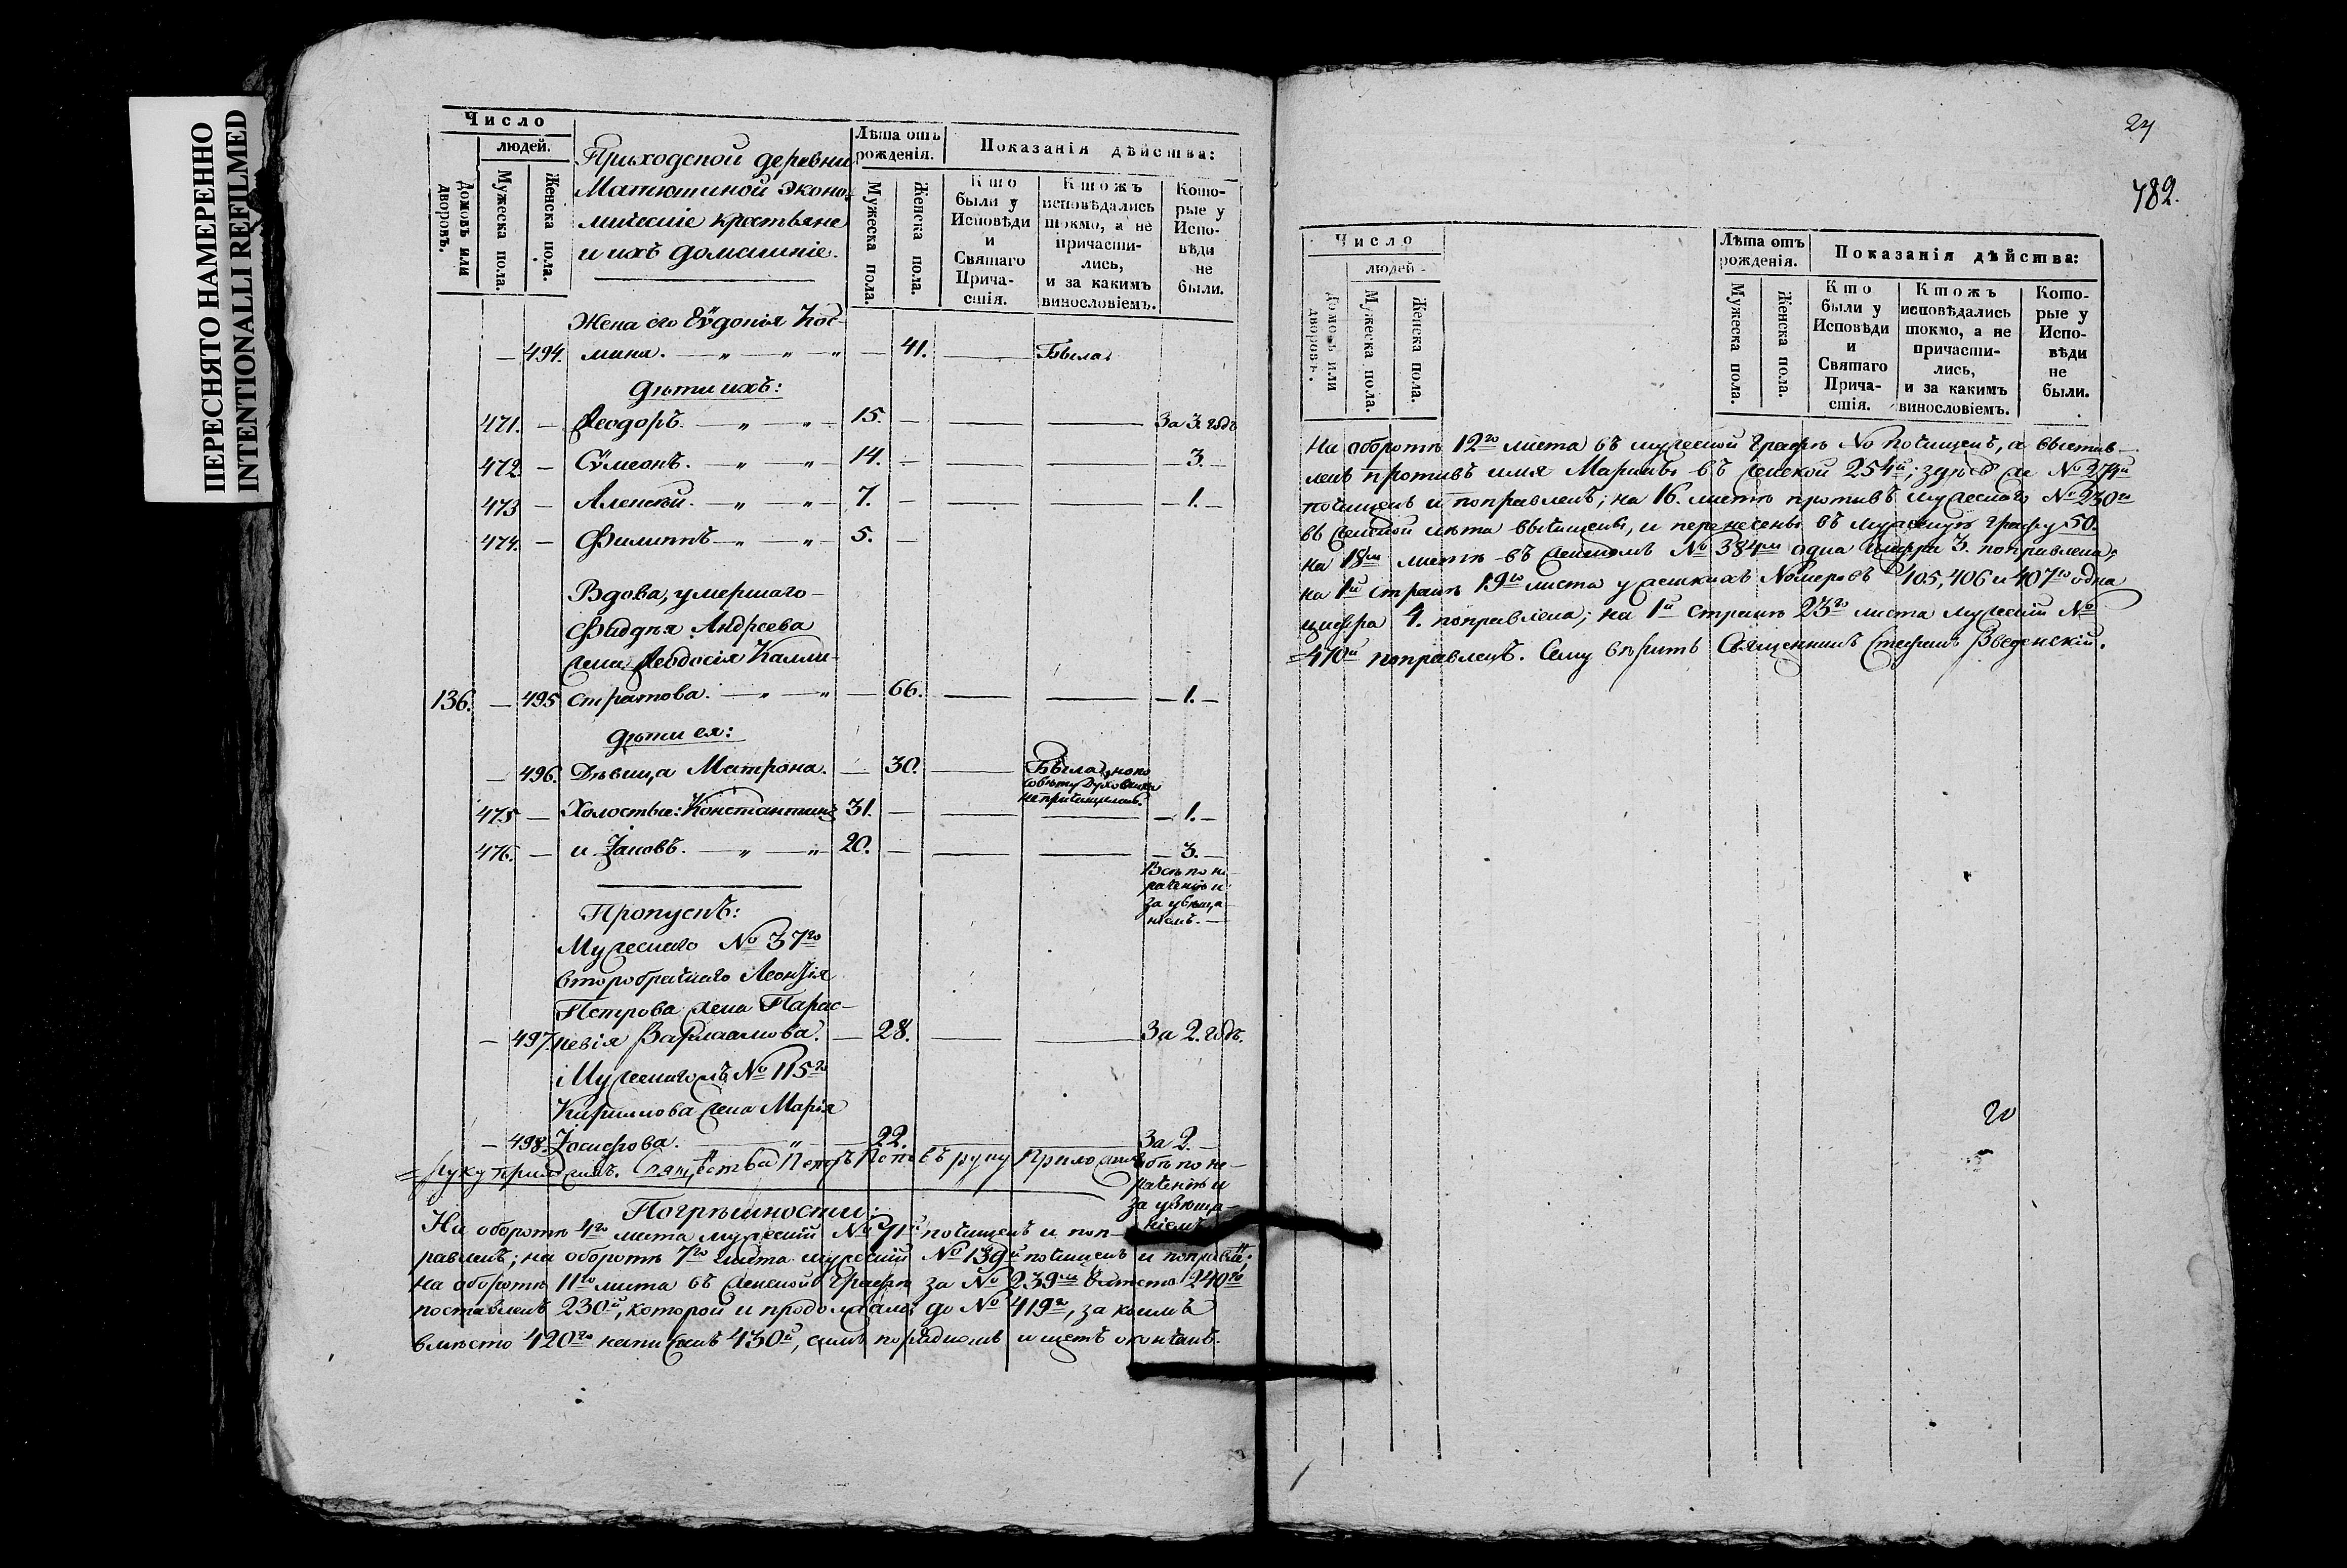 ПЕРЕСНЯТО НАМЕРЕННО
INTENTIONALLI REFILMED
Число
людей.
Домовъ или дворовъ.
Мужеска пола.
Женска пола.
Приходской деревни
Матюшиной эконо-
мическіе крестьяне
и ихъ домашніе.
Лѣта отъ рожденія.
Мужеска пола.
Женска пола.
Показанія дѣйства:
Кто были у Исповѣди и Святаго Прича-стія.
Ктожъ исповѣдались токмо, а не причасти-лись, и за какимъ винословіемъ.
Кото-рые у Испо-вѣди не были.
Жена его Еѵдокія Кос-
— 494. мина. — „ — „ — „ — 41. — Была
Дѣти ихъ:
471. — Ѳеодоръ. — „ — „ — 15. — За 3. годъ
472. — Сѵмеонъ. — „ — „ — 14. — — 3. —
473 — Алексѣй. — „ — „ — 7. — — 1. —
474. — Филиппъ — „ — „ — 5. —
Вдова, умершаго
Фадѣя Андреева
жена Ѳеодосія Калли-
136. — 495 стратова. — „ — „ — 66. — — 1. —
Дѣти ея:
— 496. Дѣвица Матрона. — 30. — Была, но по
совѣту Духовника
не причащалась.
475 — Холостые: Константинъ 31. — — 1. —
476. — и Іаковъ. — „ — „ — 20. — — 3. —
Всѣ по не-
раченію и
за увѣща-
ніемъ. —
Пропускъ:
Мужескаго № 37го
второбрачнаго Леонтія
Петрова жена Парас-
— 497. кевія Варлаамова. — 28. — За 2. годъ.
и Мужескаго № 115го
Кириллова жена Марія
— 498. Іосифова. — „ — 22. За 2. —
руку приложилъ.
обѣ по не-
раченію и
за увѣща-
ніемъ
Погрѣшности:
На оборотѣ 4го листа мужескій № 71й почищенъ и поп-
равленъ; на оборотѣ 7го листа мужескій № 139й почищенъ и поправлен;
на оборотѣ 11го листа въ женской графѣ за № 239мъ вмѣсто 240го
поставленъ 230й, которой и продолжался до № 419го, за коимъ
вмѣсто 420го написанъ 430й, симъ порядкомъ и щетъ оконченъ.
24
482.
Число
людей.
Домовъ или дворовъ.
Мужеска пола.
Женска пола.
Лѣта отъ рожденія.
Мужеска пола.
Женска пола.
Показанія дѣйства:
Кто были у Исповѣди и Святаго Прича-стія.
Ктожъ исповѣдались токмо, а не причасти-лись, и за какимъ винословіемъ.
Кото-рые у Испо-вѣди не были.
На оборотѣ 12го листа въ мужеской графѣ № почищенъ, а выстав-
ленъ противъ имя Марины въ женской 254й; здѣсь же № 274й
почищенъ и поправленъ; на 16. листѣ противъ мужескаго № 230го
въ женской лѣта вычищены, и перенесены въ мужскую графу 50.
на 18мъ листѣ въ женскомъ № 384мъ одна цифра 3. поправлена;
на 1й стран. 19го листа у женскихъ Номеровъ 405, 406 и 407го одна
цифра 4. поправлена; на 1й стран. 23го листа мужескій №
470й поправленъ. Сему вѣритъ Священникъ Стефанъ Введенскій.